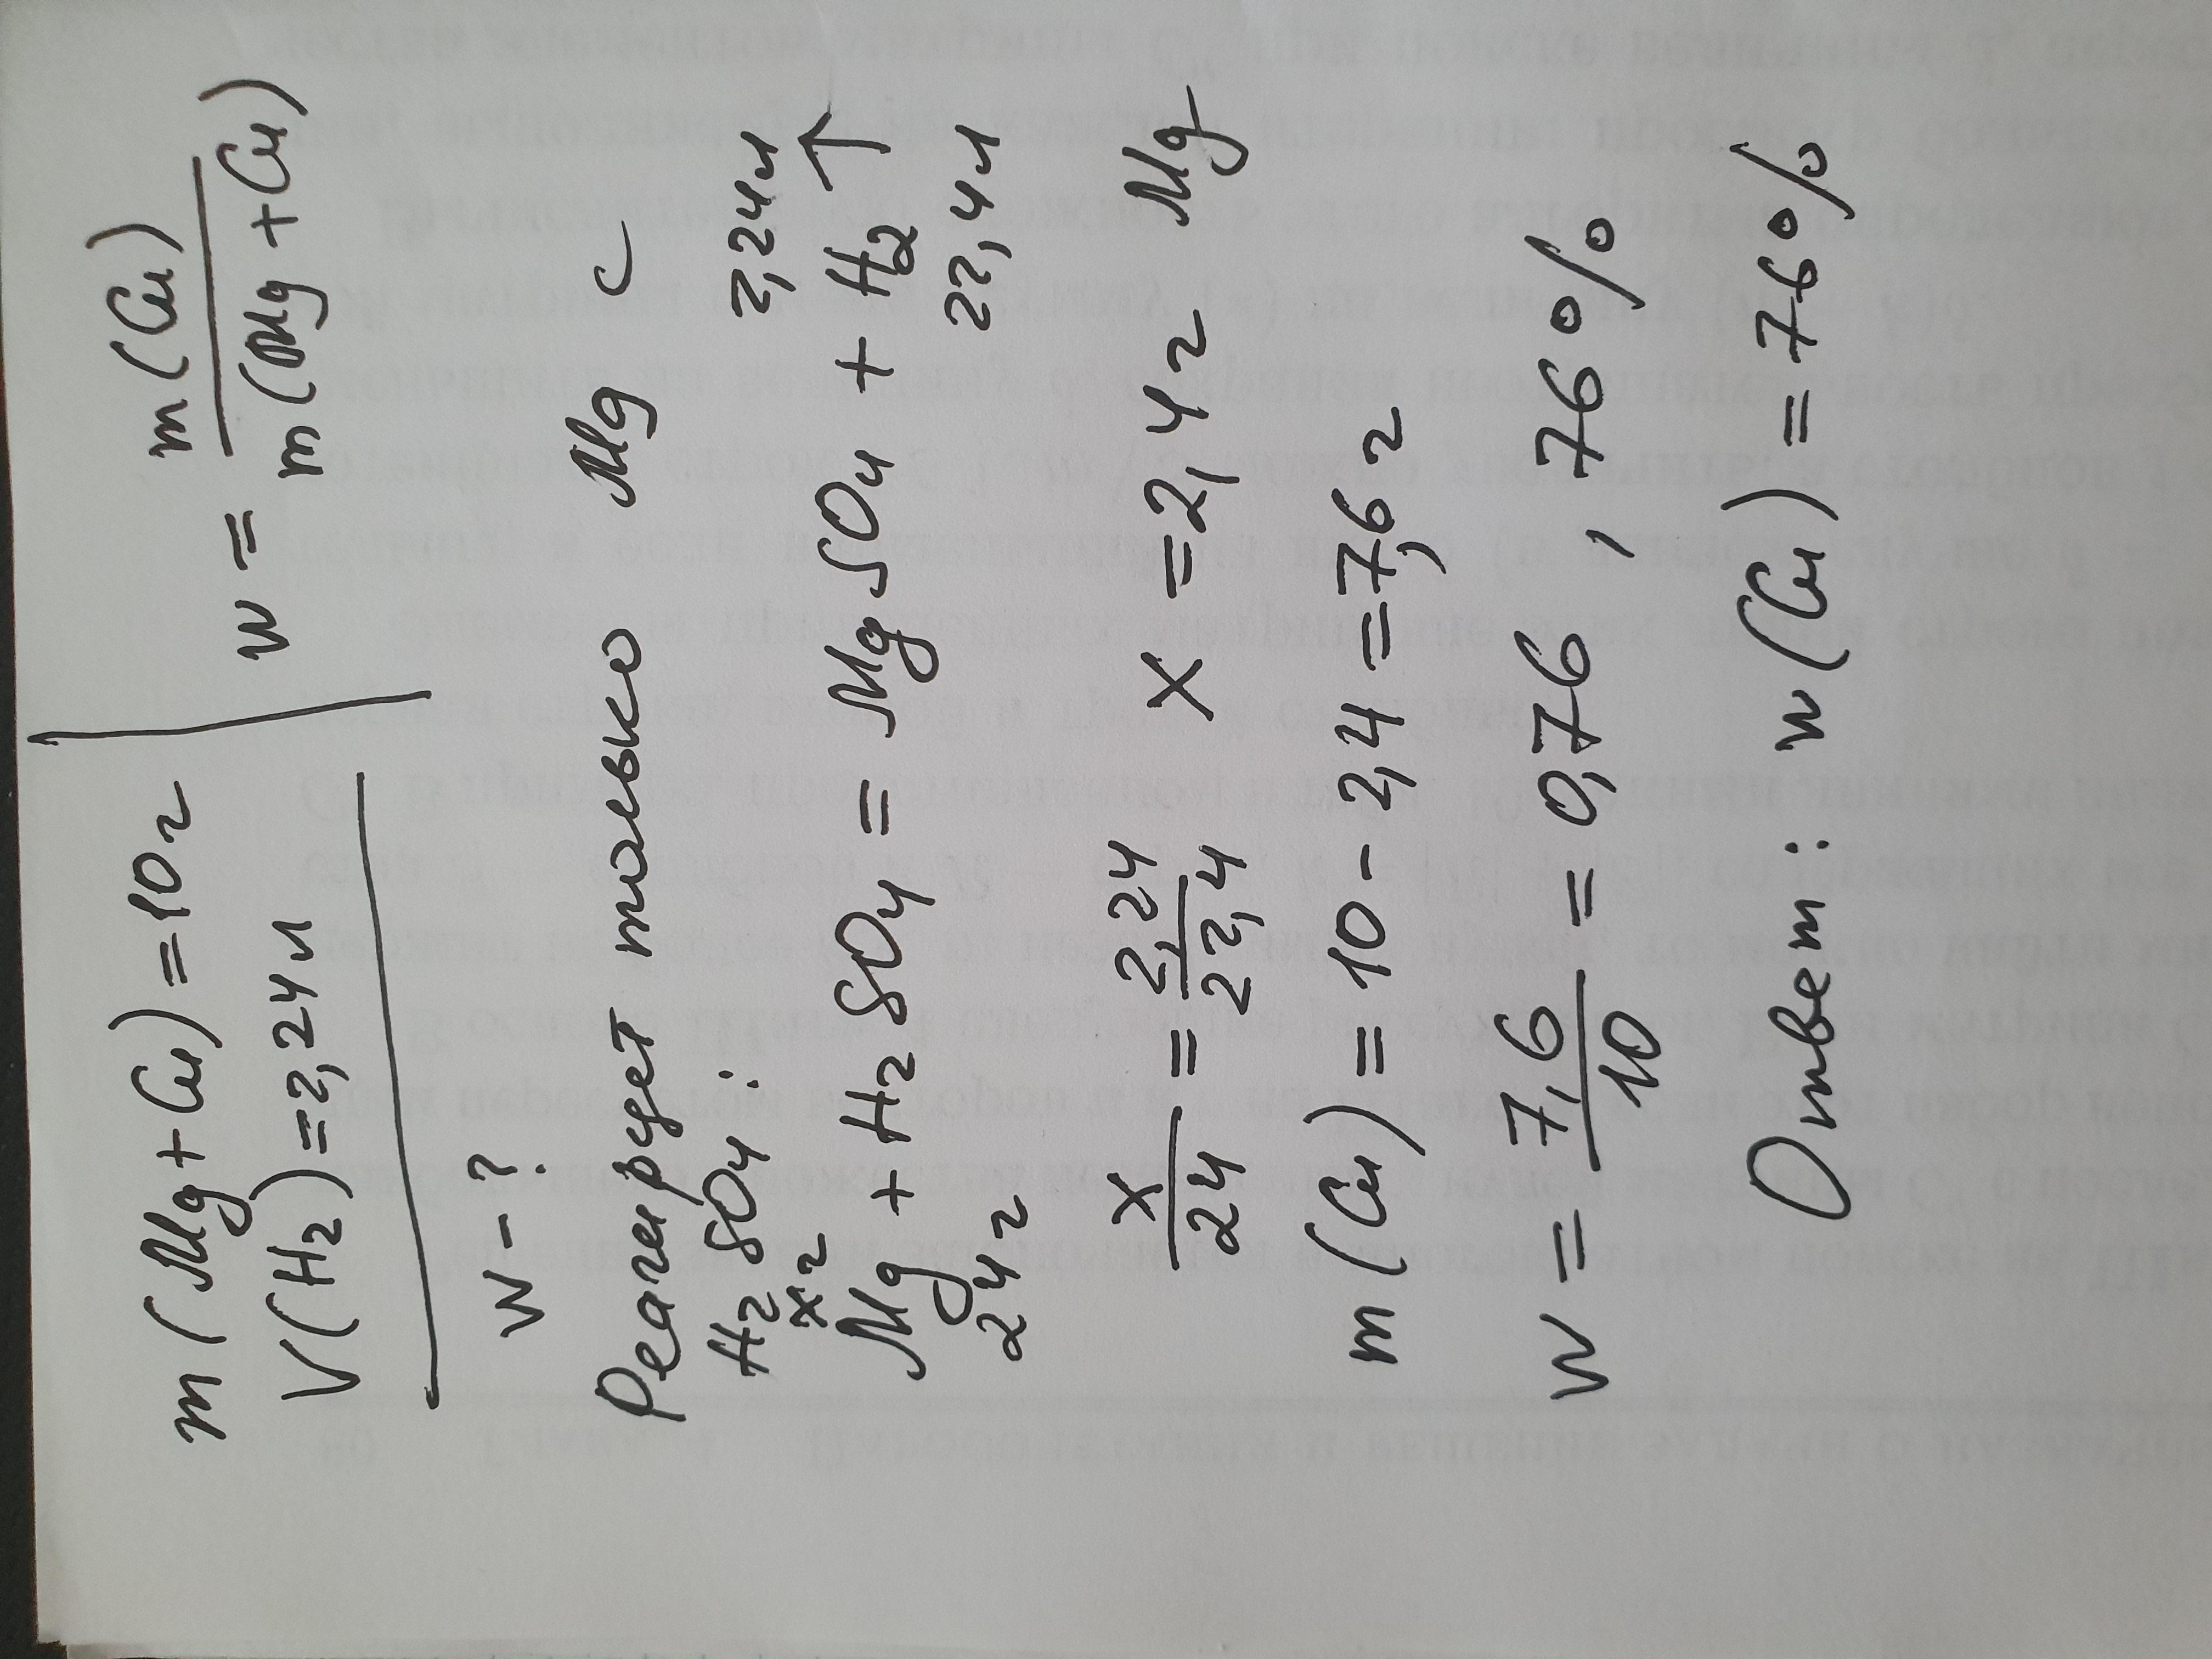 m(Mg+Cu)=10г
V(H₂)=2,24л
w-?
w = m(Cu)/m(Mg+Cu)
Реагирует только Mg с
H₂SO₄:
xг 2,24л
Mg + H₂SO₄ = MgSO₄ + H₂↑
24г 22,4л
x/24 = 2,24/22,4 x =2,4г Mg
m(Cu) = 10 - 2,4 =7,6г
w = 7,6/10 = 0,76 , 76%
Ответ: w(Cu) = 76%